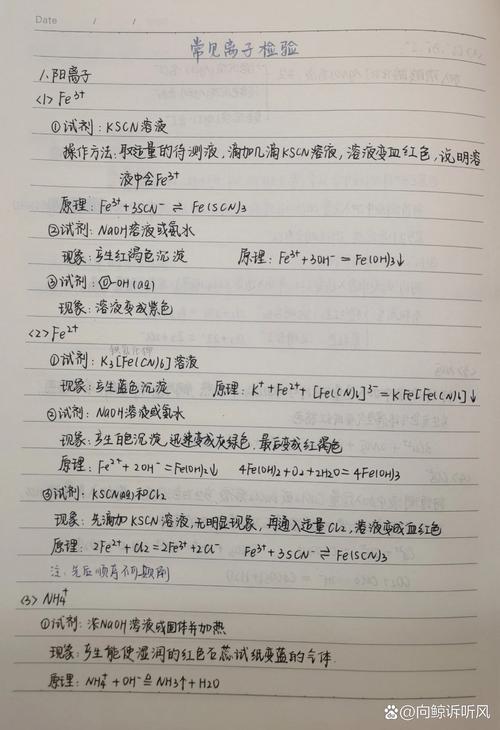 Date / /
常见离子检验
1.阳离子
<1> Fe³⁺
①试剂：KSCN溶液
操作方法：取适量的待测液，滴加几滴KSCN溶液，溶液变血红色，说明溶
液中含Fe³⁺
原理：Fe³⁺+3SCN⁻ ⇌ Fe(SCN)₃
②试剂：NaOH溶液或氨水
现象：产生红褐色沉淀 原理：Fe³⁺+3OH⁻=Fe(OH)₃↓
③试剂：-OH(aq)
现象：溶液变成紫色
<2> Fe²⁺
①试剂：K₃[Fe(CN)₆]溶液
现象：产生蓝色沉淀 原理：K⁺+Fe²⁺+[Fe(CN)₆]³⁻=KFe[Fe(CN)₆]↓
②试剂：NaOH溶液或氨水
现象：产生白色沉淀，迅速变成灰绿色，最后变成红褐色
原理：Fe²⁺+2OH⁻=Fe(OH)₂↓ 4Fe(OH)₂+O₂+2H₂O=4Fe(OH)₃
③试剂：KSCN(aq)和Cl₂
现象：先滴加KSCN溶液，无明显现象，再通入适量Cl₂，溶液变成血红色
原理：2Fe²⁺+Cl₂=2Fe³⁺+2Cl⁻ Fe³⁺+3SCN⁻⇌Fe(SCN)₃
注：先后顺序不可颠倒
<3> NH₄⁺
①试剂：浓NaOH溶液或固体并加热
现象：产生能使湿润的红色石蕊试纸变蓝的气体.
原理：NH₄⁺+OH⁻≜NH₃↑+H₂O
@向鲸诉听风